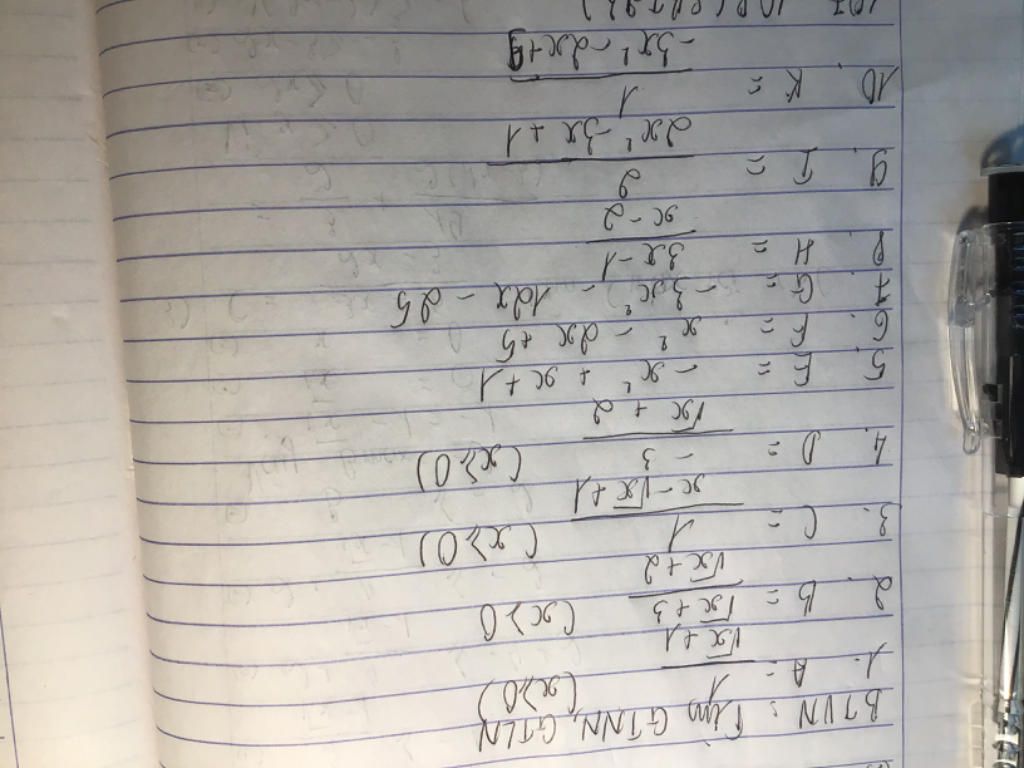 BTVN: Tìm GTNN, GTLN
1. A = 1 / (√x + 1) (x ≥ 0)
2. B = (√x + 3) / (√x + 2) (x ≥ 0
3. C = 1 / (x - √x + 1) (x ≥ 0)
4. D = -3 / (√x + 2) (x ≥ 0)
5. E = -x² + x + 1
6. F = x² - 2x + 5
7. G = -3x² - 12x - 25
8. H = (3x - 1) / (x - 2)
9. I = 2 / (2x² - 3x + 1)
10. K = 1 / (-3x² - 2x + 9)